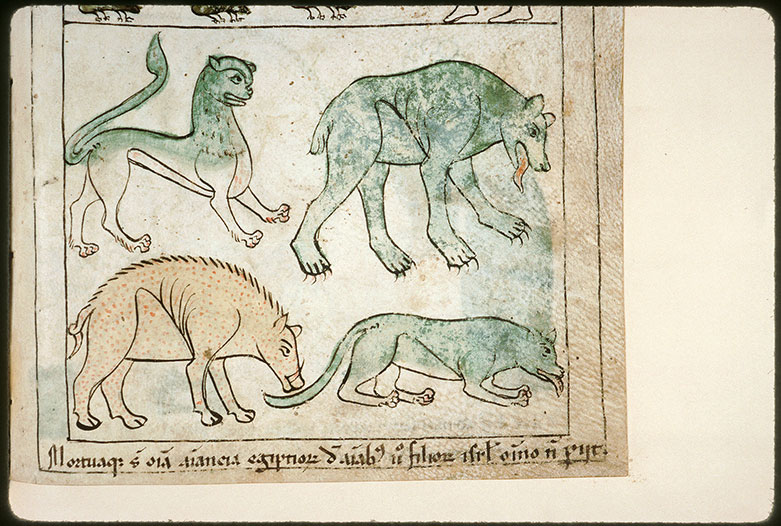 Mortuaq: s̄ oīa aīancia egiptior̄ d̄ aīabꝫ uº filior̄ isrl̄ oīno n̄ ꝑijt.